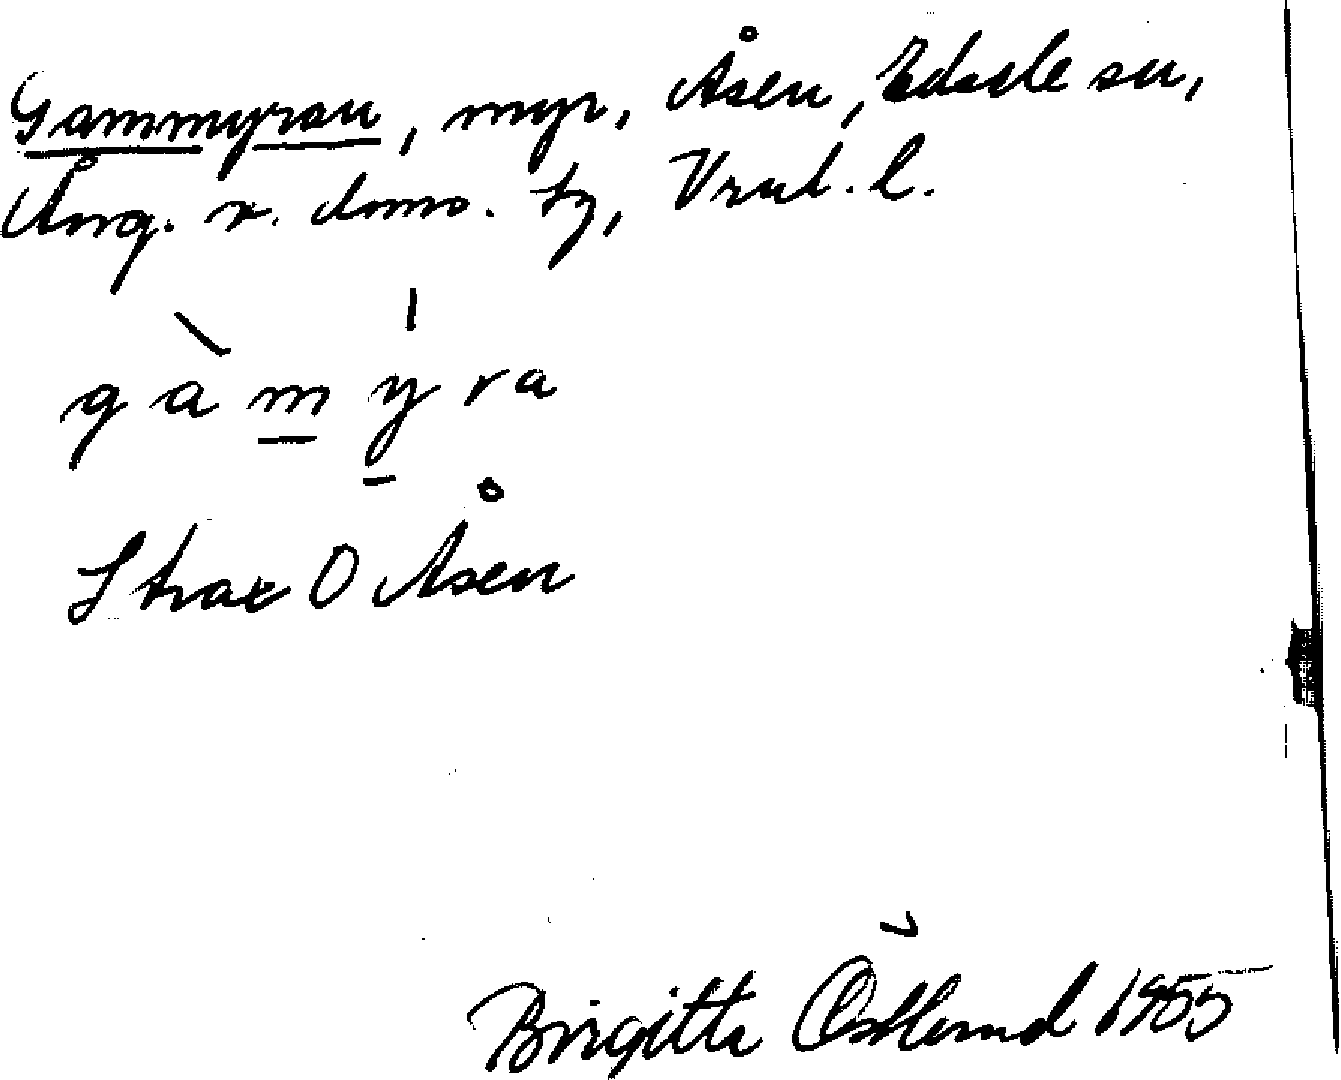 Gammyran, myr, Åsen, Edsele sn,
Ång. v. dmro. tg, Vrul. l.
g à m ý ra
Strax O Åsen
Birgitta Östlund 1955